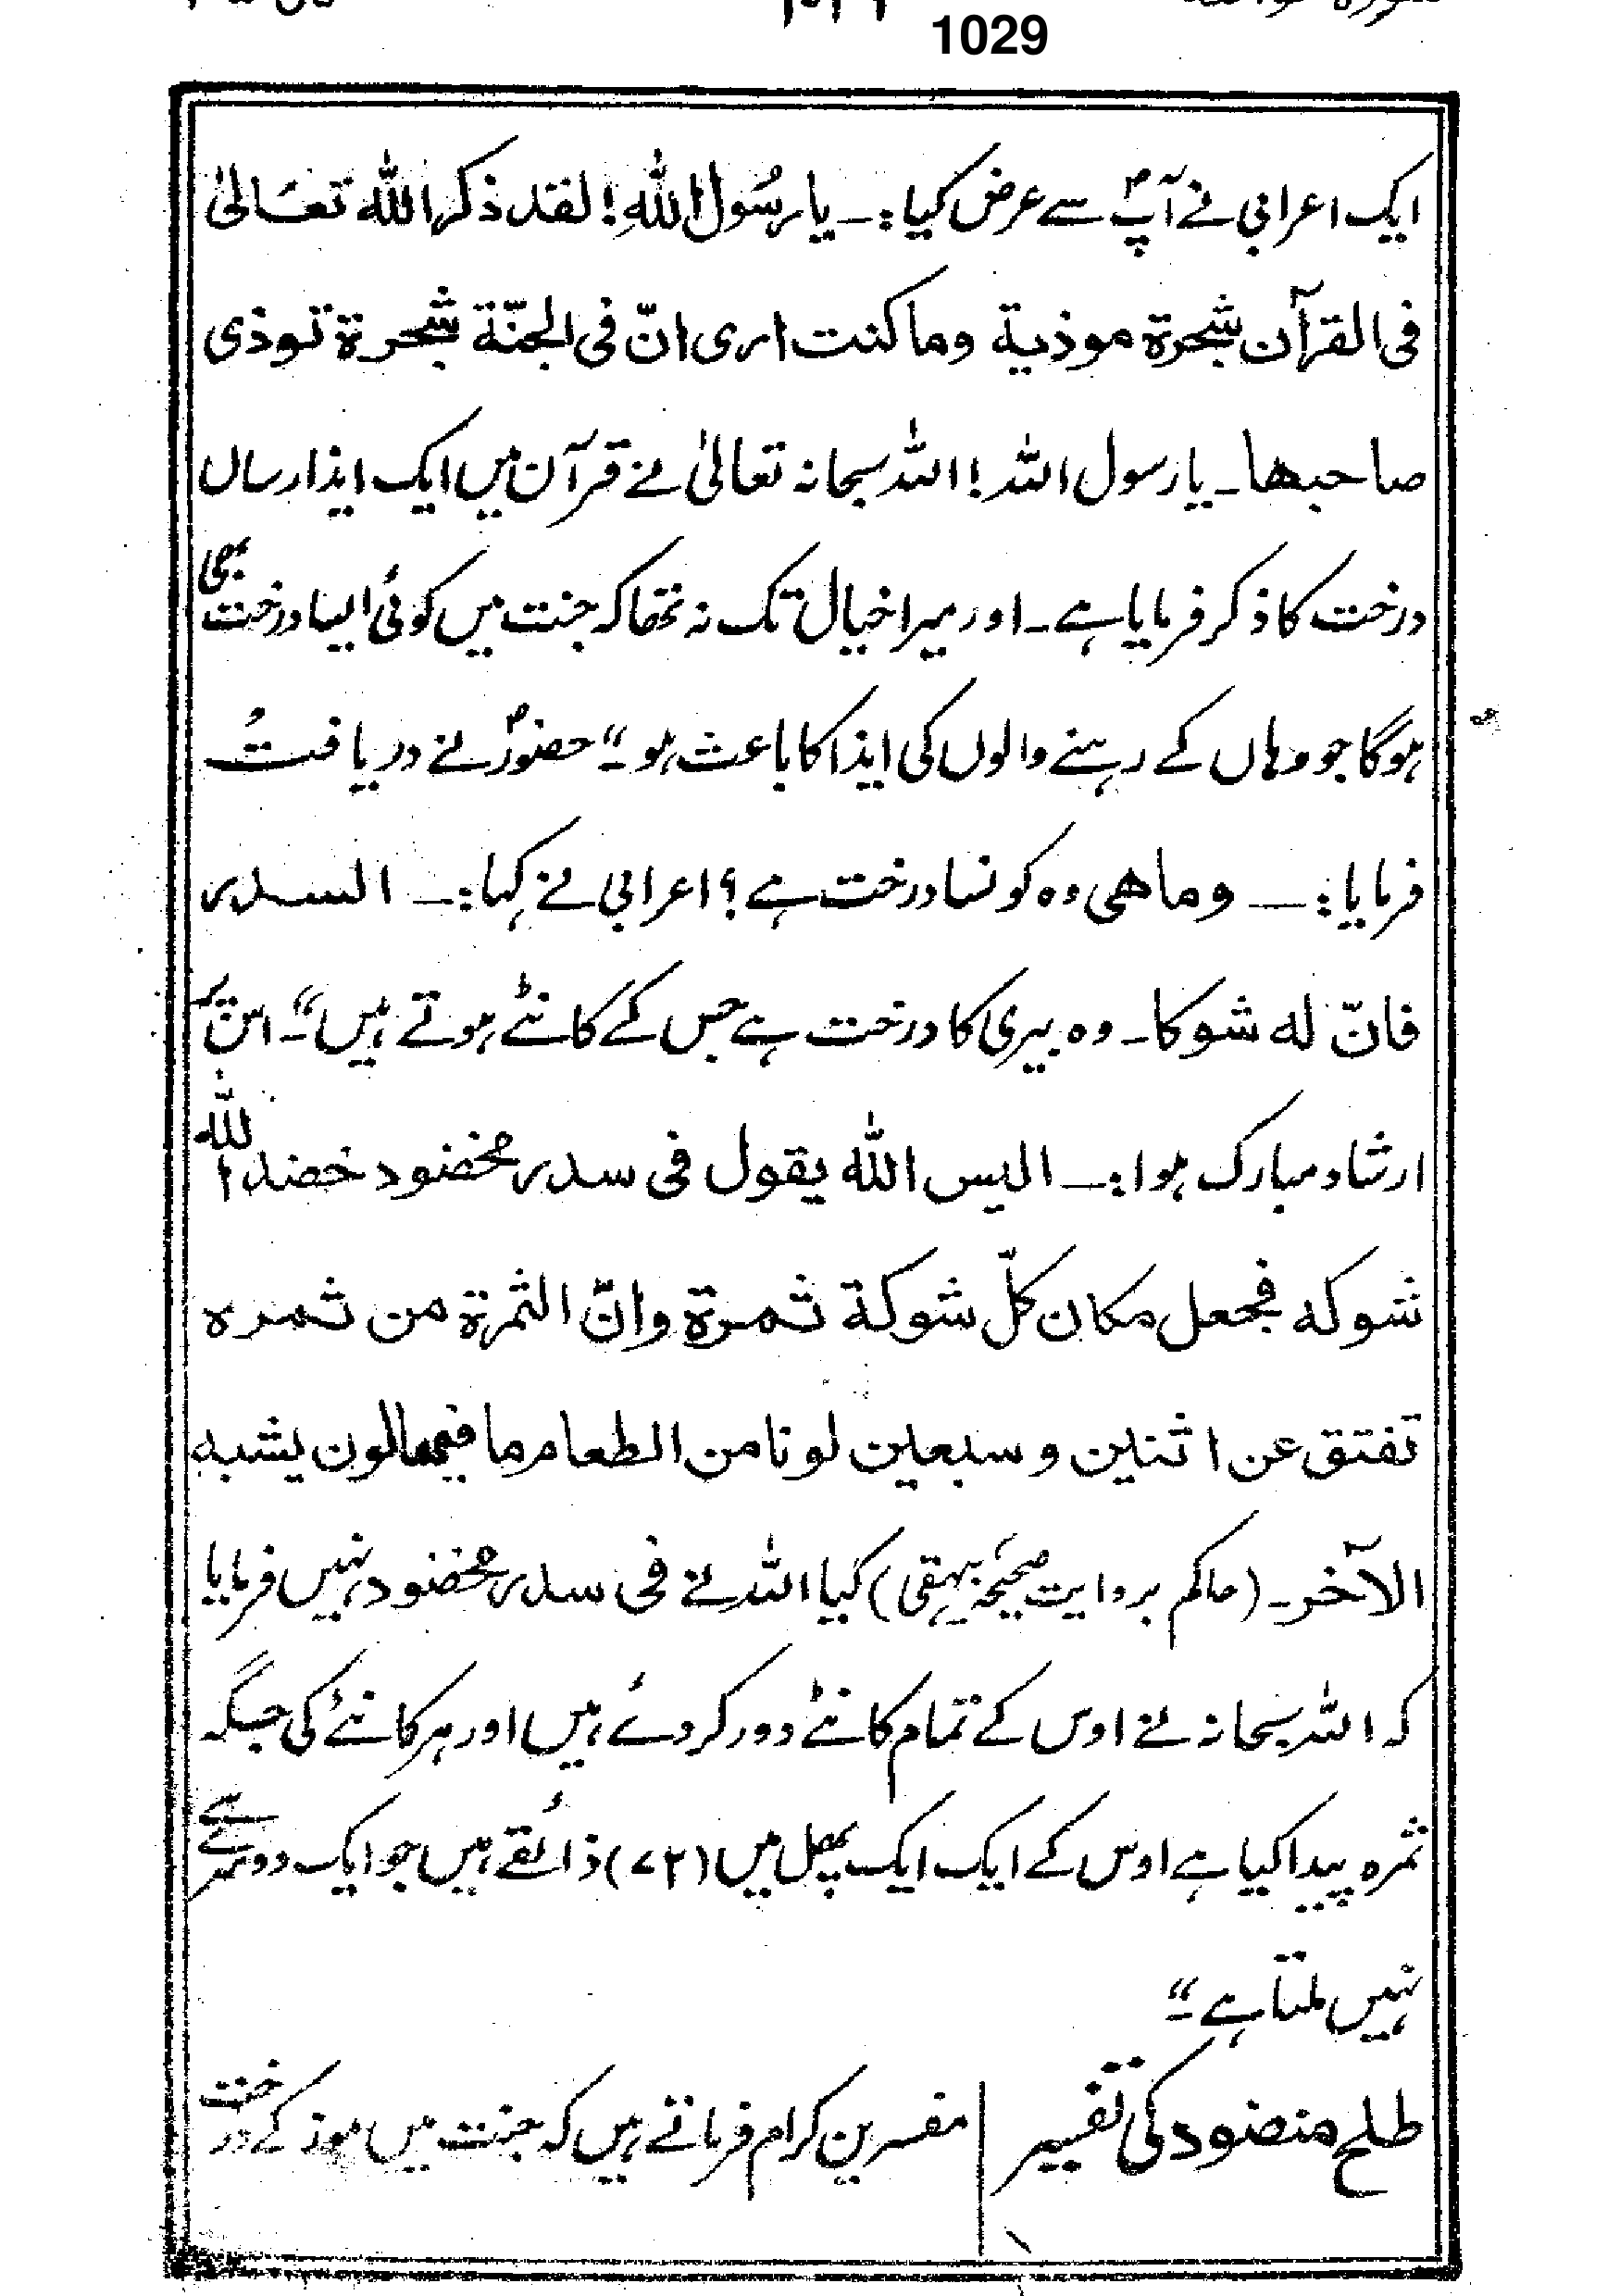 1029
ایک اعرابی نے آپؐ سے عرض کیا :۔ یا رسُول اللّٰهِ! لقد ذکر اللّٰه تعَالیٰ
فی القرآن شجرة موذیة وما کنت اری انّ فی الجنّة شجرة توذی
صاحبھا۔ یا رسول اللہ! اللہ سبحانہ تعالیٰ نے قرآن میں ایک ایذا رساں
درخت کا ذکر فرمایا ہے۔ اور میرا خیال تک نہ تھا کہ جنت میں کوئی ایسا درخت بھی
ہوگا جو وہاں کے رہنے والوں کی ایذا کا باعث ہو۔“ حضورؐ نے دریافت
فرمایا :۔ وما ھی وہ کونسا درخت ہے؟ اعرابی نے کہا :۔ السدر
فانّ له شوکا۔ وہ بیری کا درخت ہے جس کے کانٹے ہوتے ہیں“۔ اس پر
ارشاد مبارک ہوا :۔ الیس اللّٰه یقول فی سدر مخضود خضد اللّٰه
شوکه فجعل مکان کلّ شوکة ثمرة وانّ الثمرة من ثمره
تفتق عن اثنین و سبعین لونا من الطعام ما فیھا لون یشبه
الآخر۔ (حاکم بروایت صحیحہ بیہقی) کیا اللہ نے فی سدر مخضود نہیں فرمایا
کہ اللہ سبحانہ نے اوس کے تمام کانٹے دور کر دئے ہیں اور ہر کانٹے کی جگہ
ثمرہ پیدا کیا ہے اوس کے ایک ایک پھل میں (۷۲) ذائقے ہیں جو ایک دوسرے سے
نہیں ملتا ہے۔“
طلح منضود کی تفسیر | مفسرین کرام فرماتے ہیں کہ جنت میں موز کے درخت